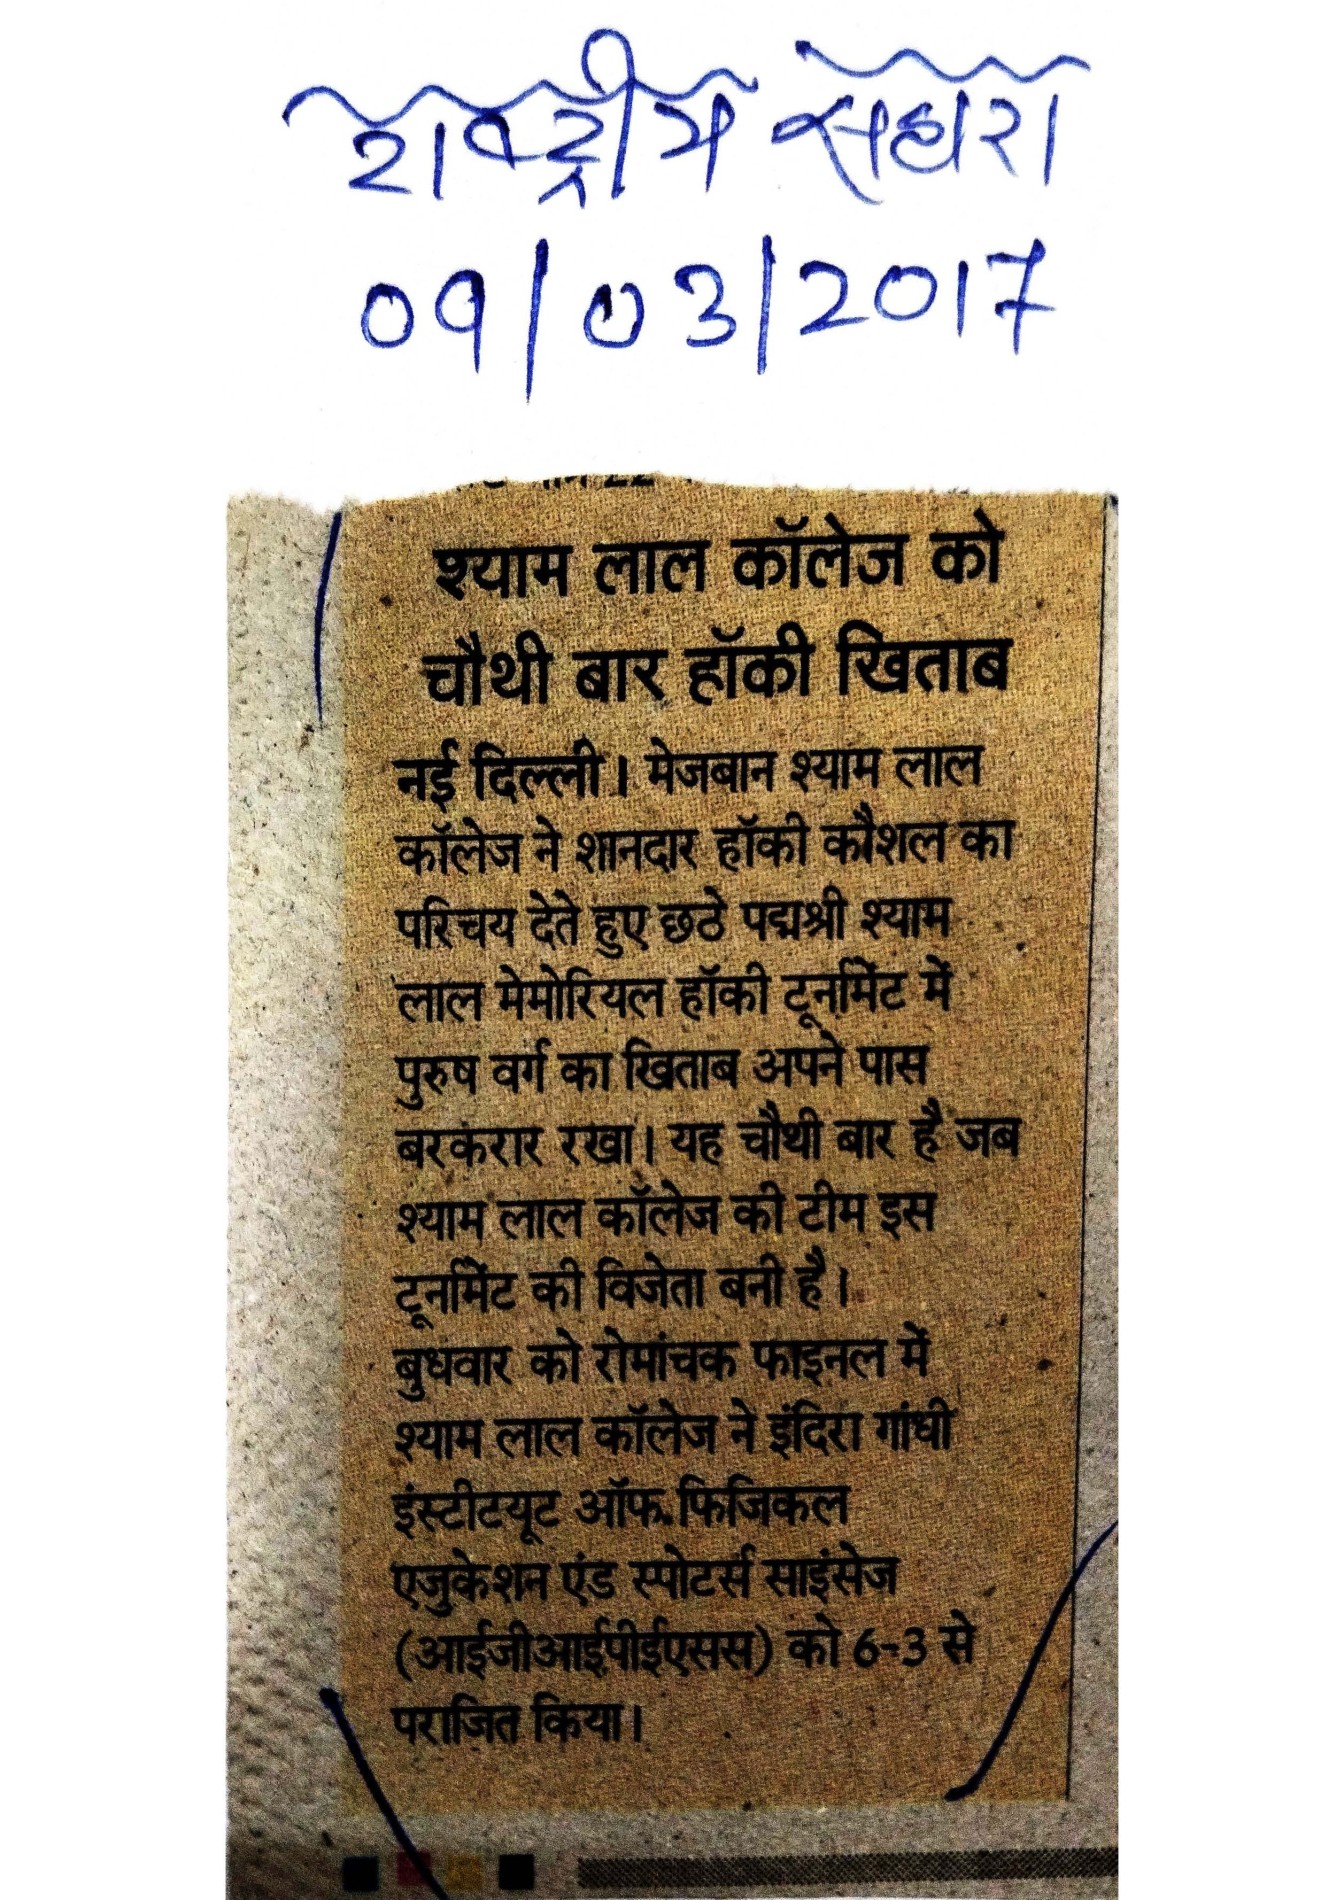 राष्ट्रीय सहारा
09/03/2017
श्याम लाल कॉलेज को
चौथी बार हॉकी खिताब
नई दिल्ली। मेजबान श्याम लाल
कॉलेज ने शानदार हॉकी कौशल का
परिचय देते हुए छठे पद्मश्री श्याम
लाल मेमोरियल हॉकी टूर्नामेंट में
पुरुष वर्ग का खिताब अपने पास
बरकरार रखा। यह चौथी बार है जब
श्याम लाल कॉलेज की टीम इस
टूर्नामेंट की विजेता बनी है।
बुधवार को रोमांचक फाइनल में
श्याम लाल कॉलेज ने इंदिरा गांधी
इंस्टीटयूट ऑफ फिजिकल
एजुकेशन एंड स्पोटर्स साइंसेज
(आईजीआईपीईएसस) को 6-3 से
पराजित किया।